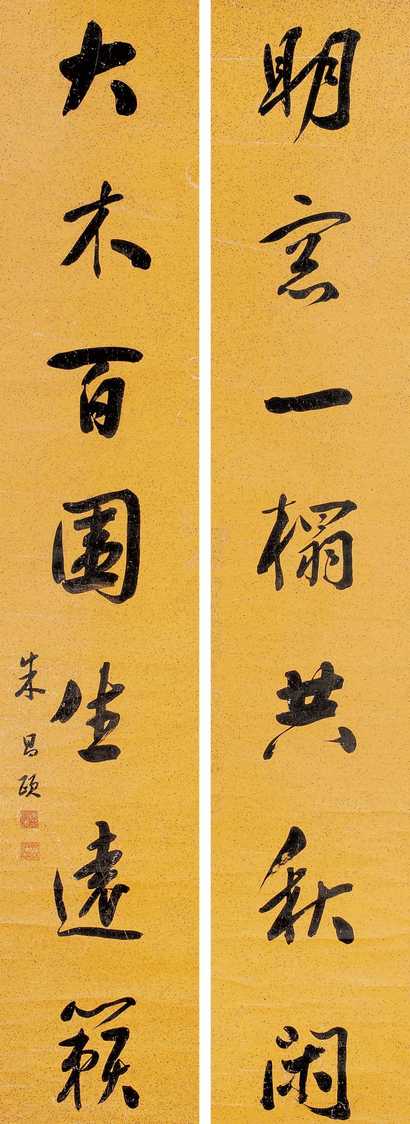 明窓一榻共秋閑
大木百圍生遠籟
朱昌頤